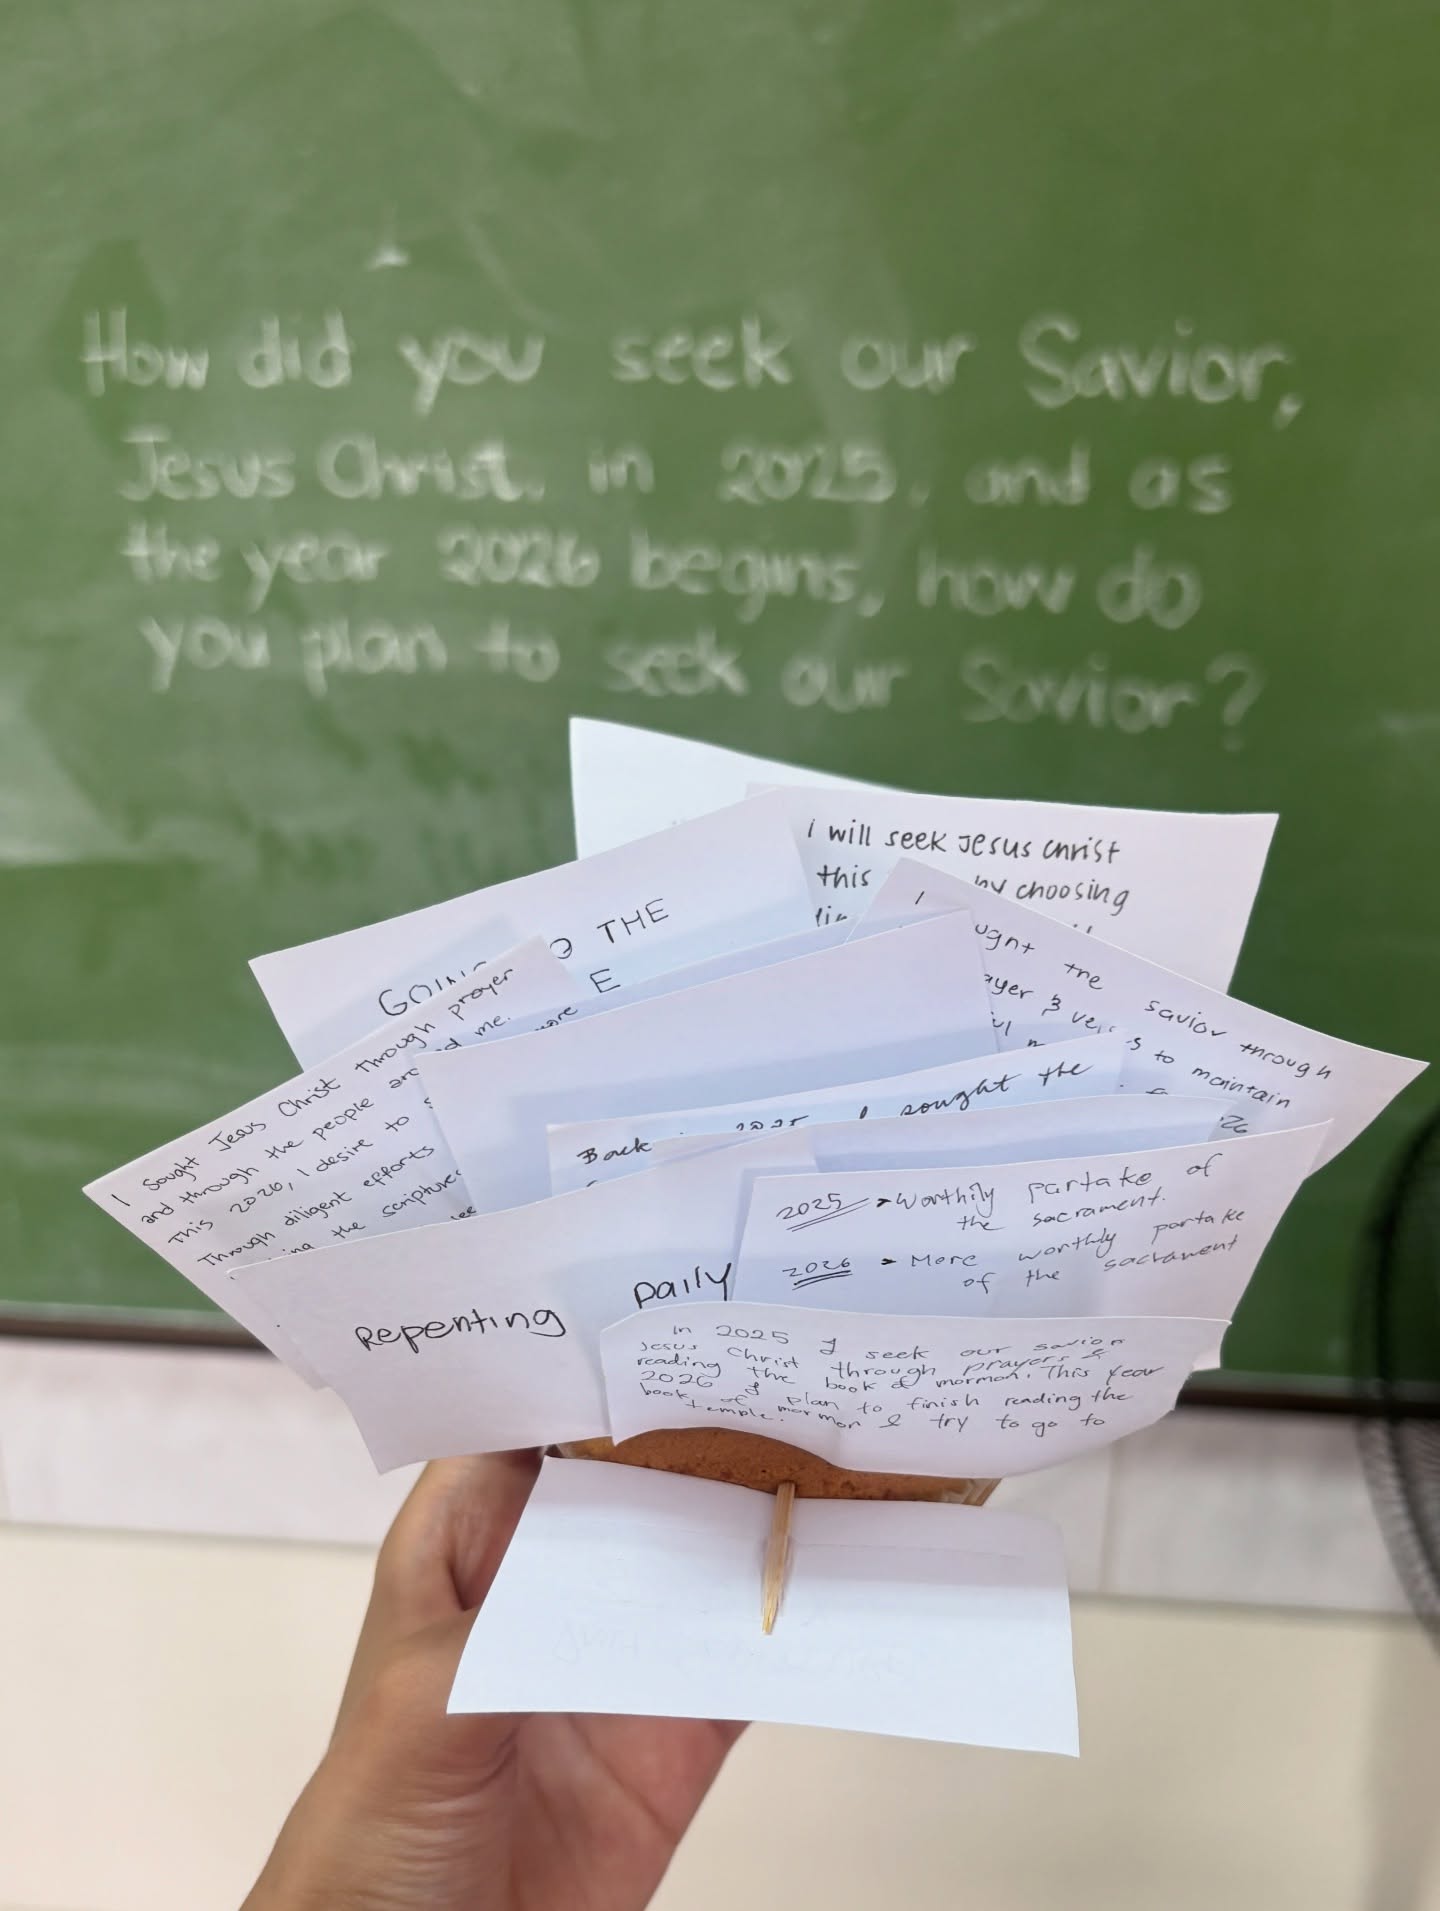 How did you seek our Savior,
Jesus Christ, in 2025, and as
the year 2026 begins, how do
you plan to seek our Savior?
i will seek Jesus christ
this by choosing
GOING THE
I sought Jesus Christ through prayer
and through the people
me.
This 2026, I desire to
Through diligent efforts
the scriptures
more
the savior through
to maintain
Back in 2025 I sought the
2025 > Worthily partake of
the sacrament.
2026 > More worthly partake
of the sacrament
Repenting Daily
In 2025 I seek our savior
Jesus Christ through prayers &
reading the book of mormon. This year
2026 I plan to finish reading the
book of mormon & try to go to
temple.